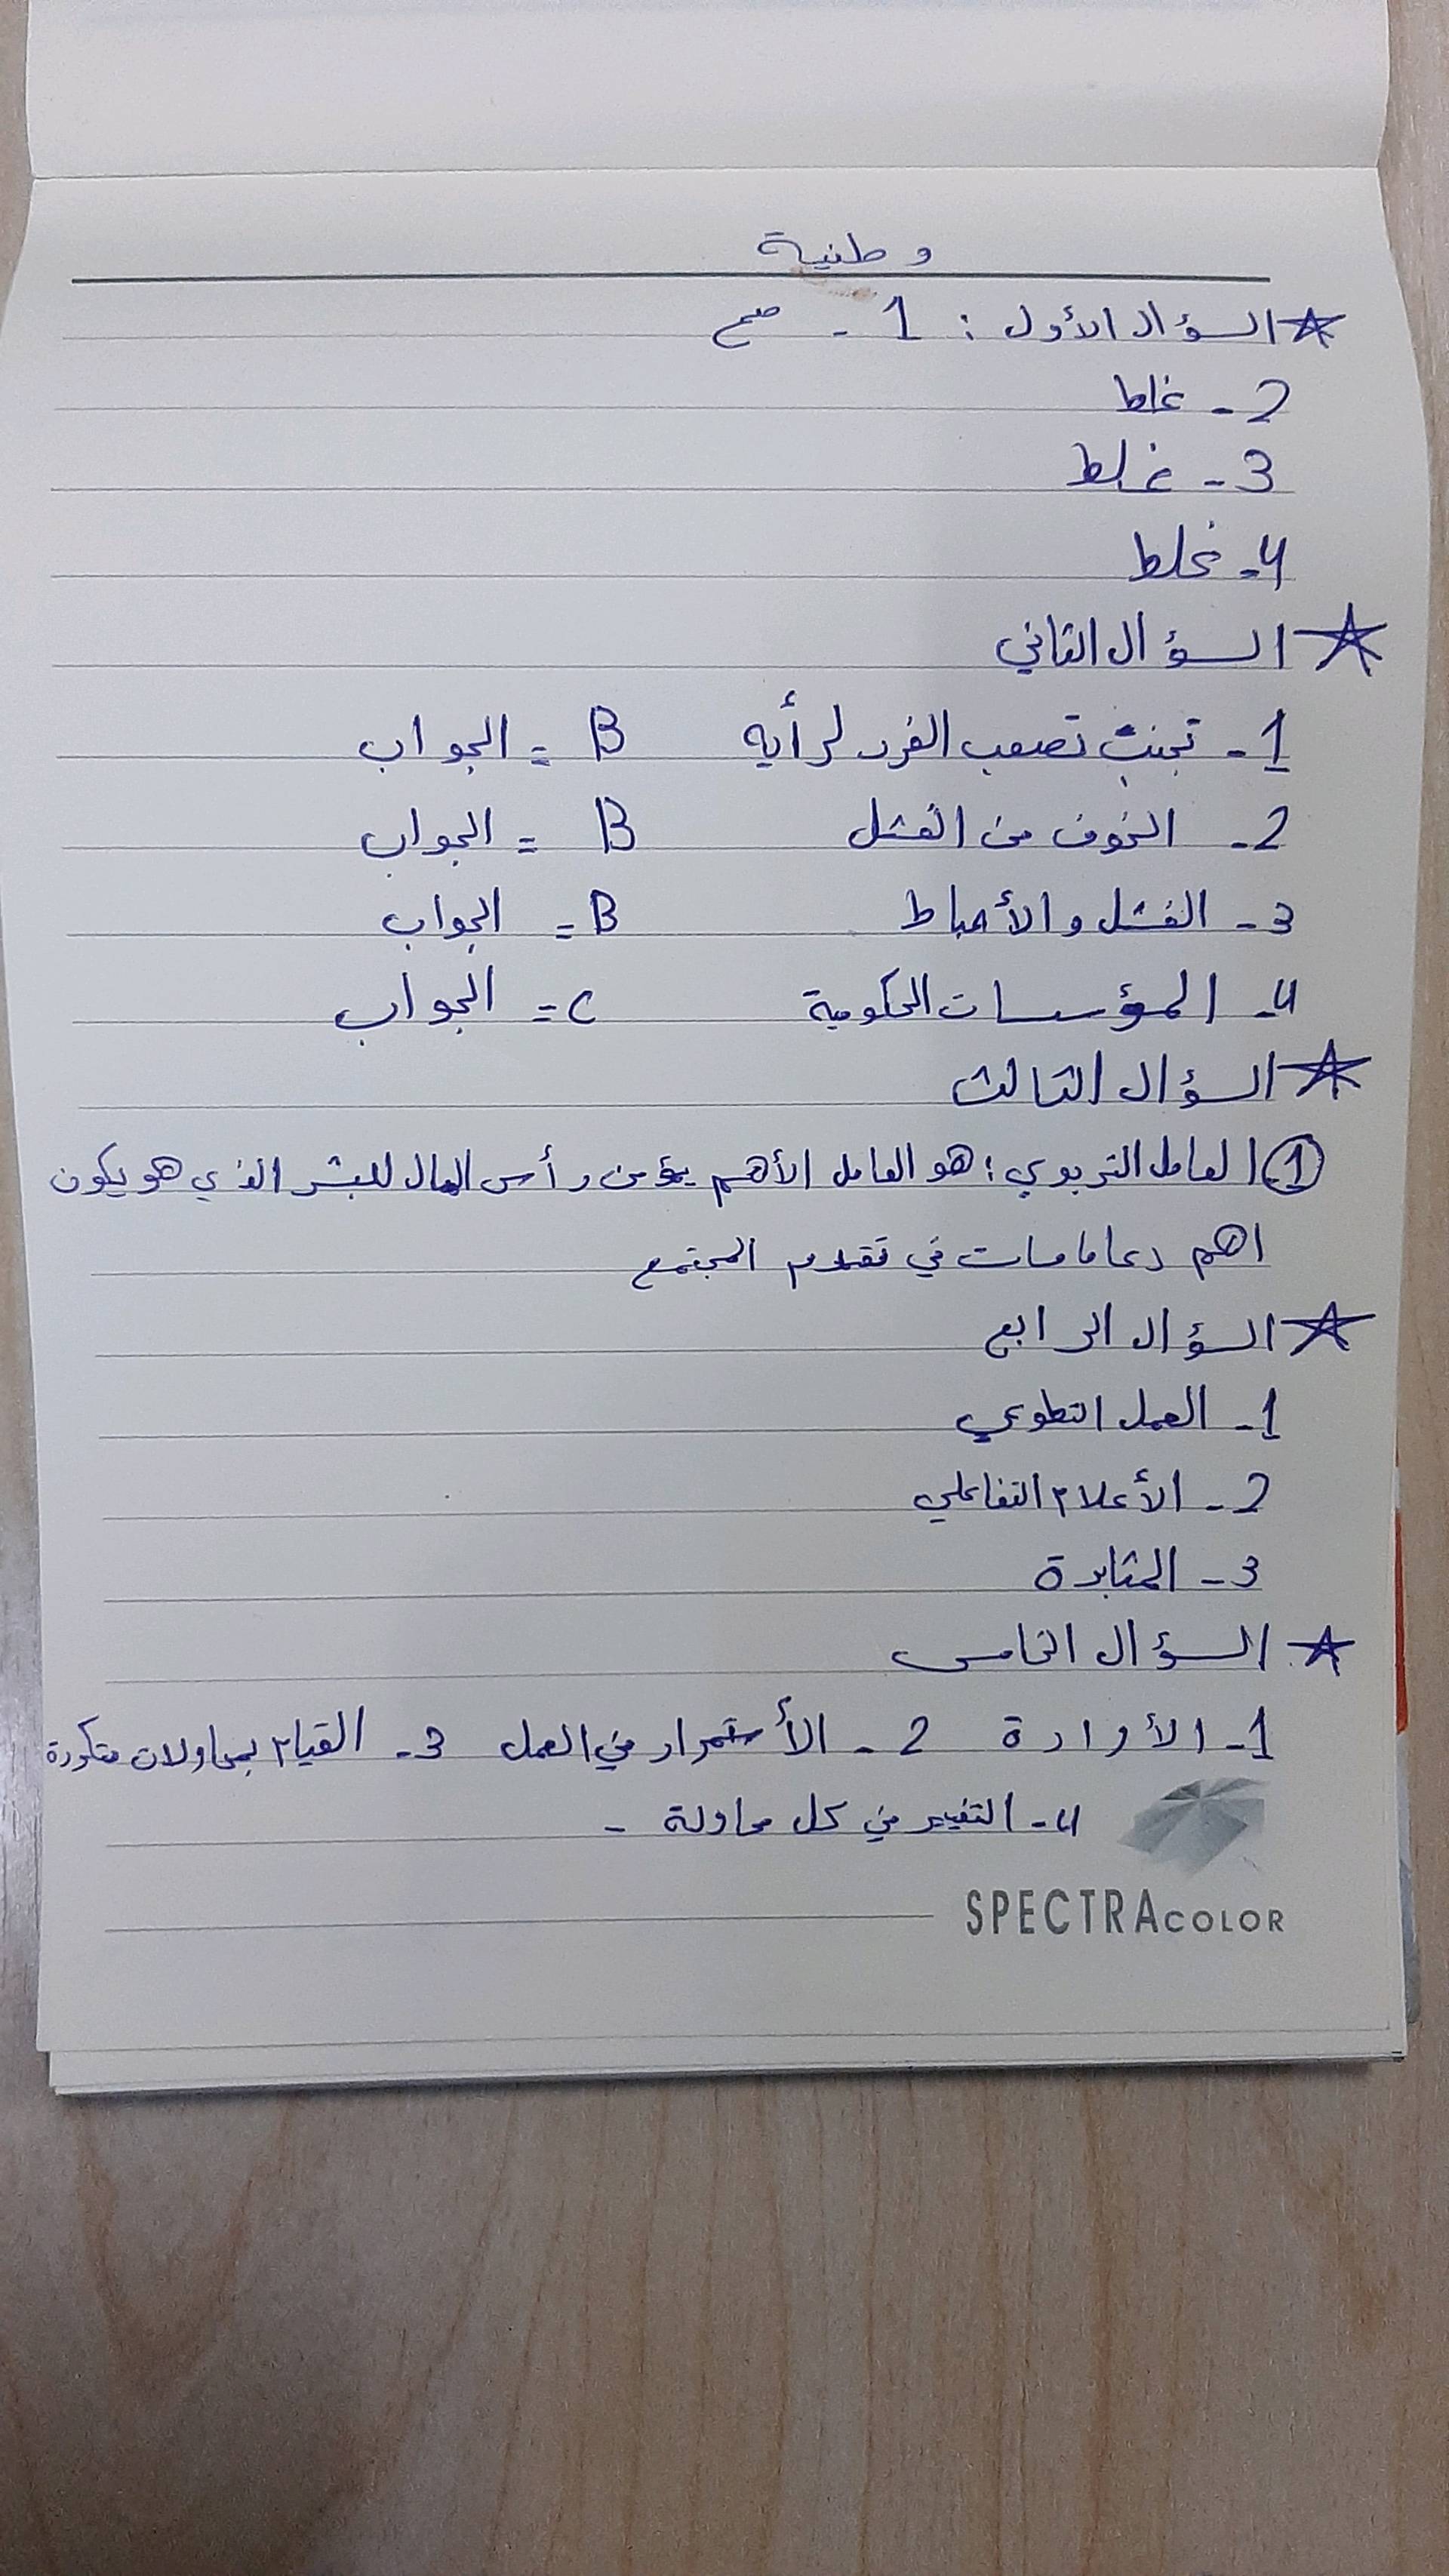 وطنية
السؤال الأول : 1 - صح
2 - غلط
3 - غلط
4 - غلط
السؤال الثاني
1 - تجنب تصعب الفرد لرأيه B = الجواب
2 - الخوف من الفشل B = الجواب
3 - الفشل والأحباط B = الجواب
4 - المؤسسات الحكومية C = الجواب
السؤال الثالث
1 العامل التربوي : هو العامل الأهم يؤمن رأس المال للبشر الذي هو يكون
اهم دعامات في تقدم المجتمع
السؤال الرابع
1 - العمل التطوعي
2 - الأعلام التفاعلي
3 - المثابرة
السؤال الخامس
1 - الأرادة 2 - الأستمرار في العمل 3 - القيام بمحاولات متكررة
4 - التغيير في كل محاولة -
SPECTRACOLOR